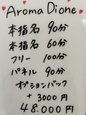 Aroma Dione
本指名 90分
本指名 60分
フリー 100分
パネル 90分
オプションバック
+3000円
48.000円